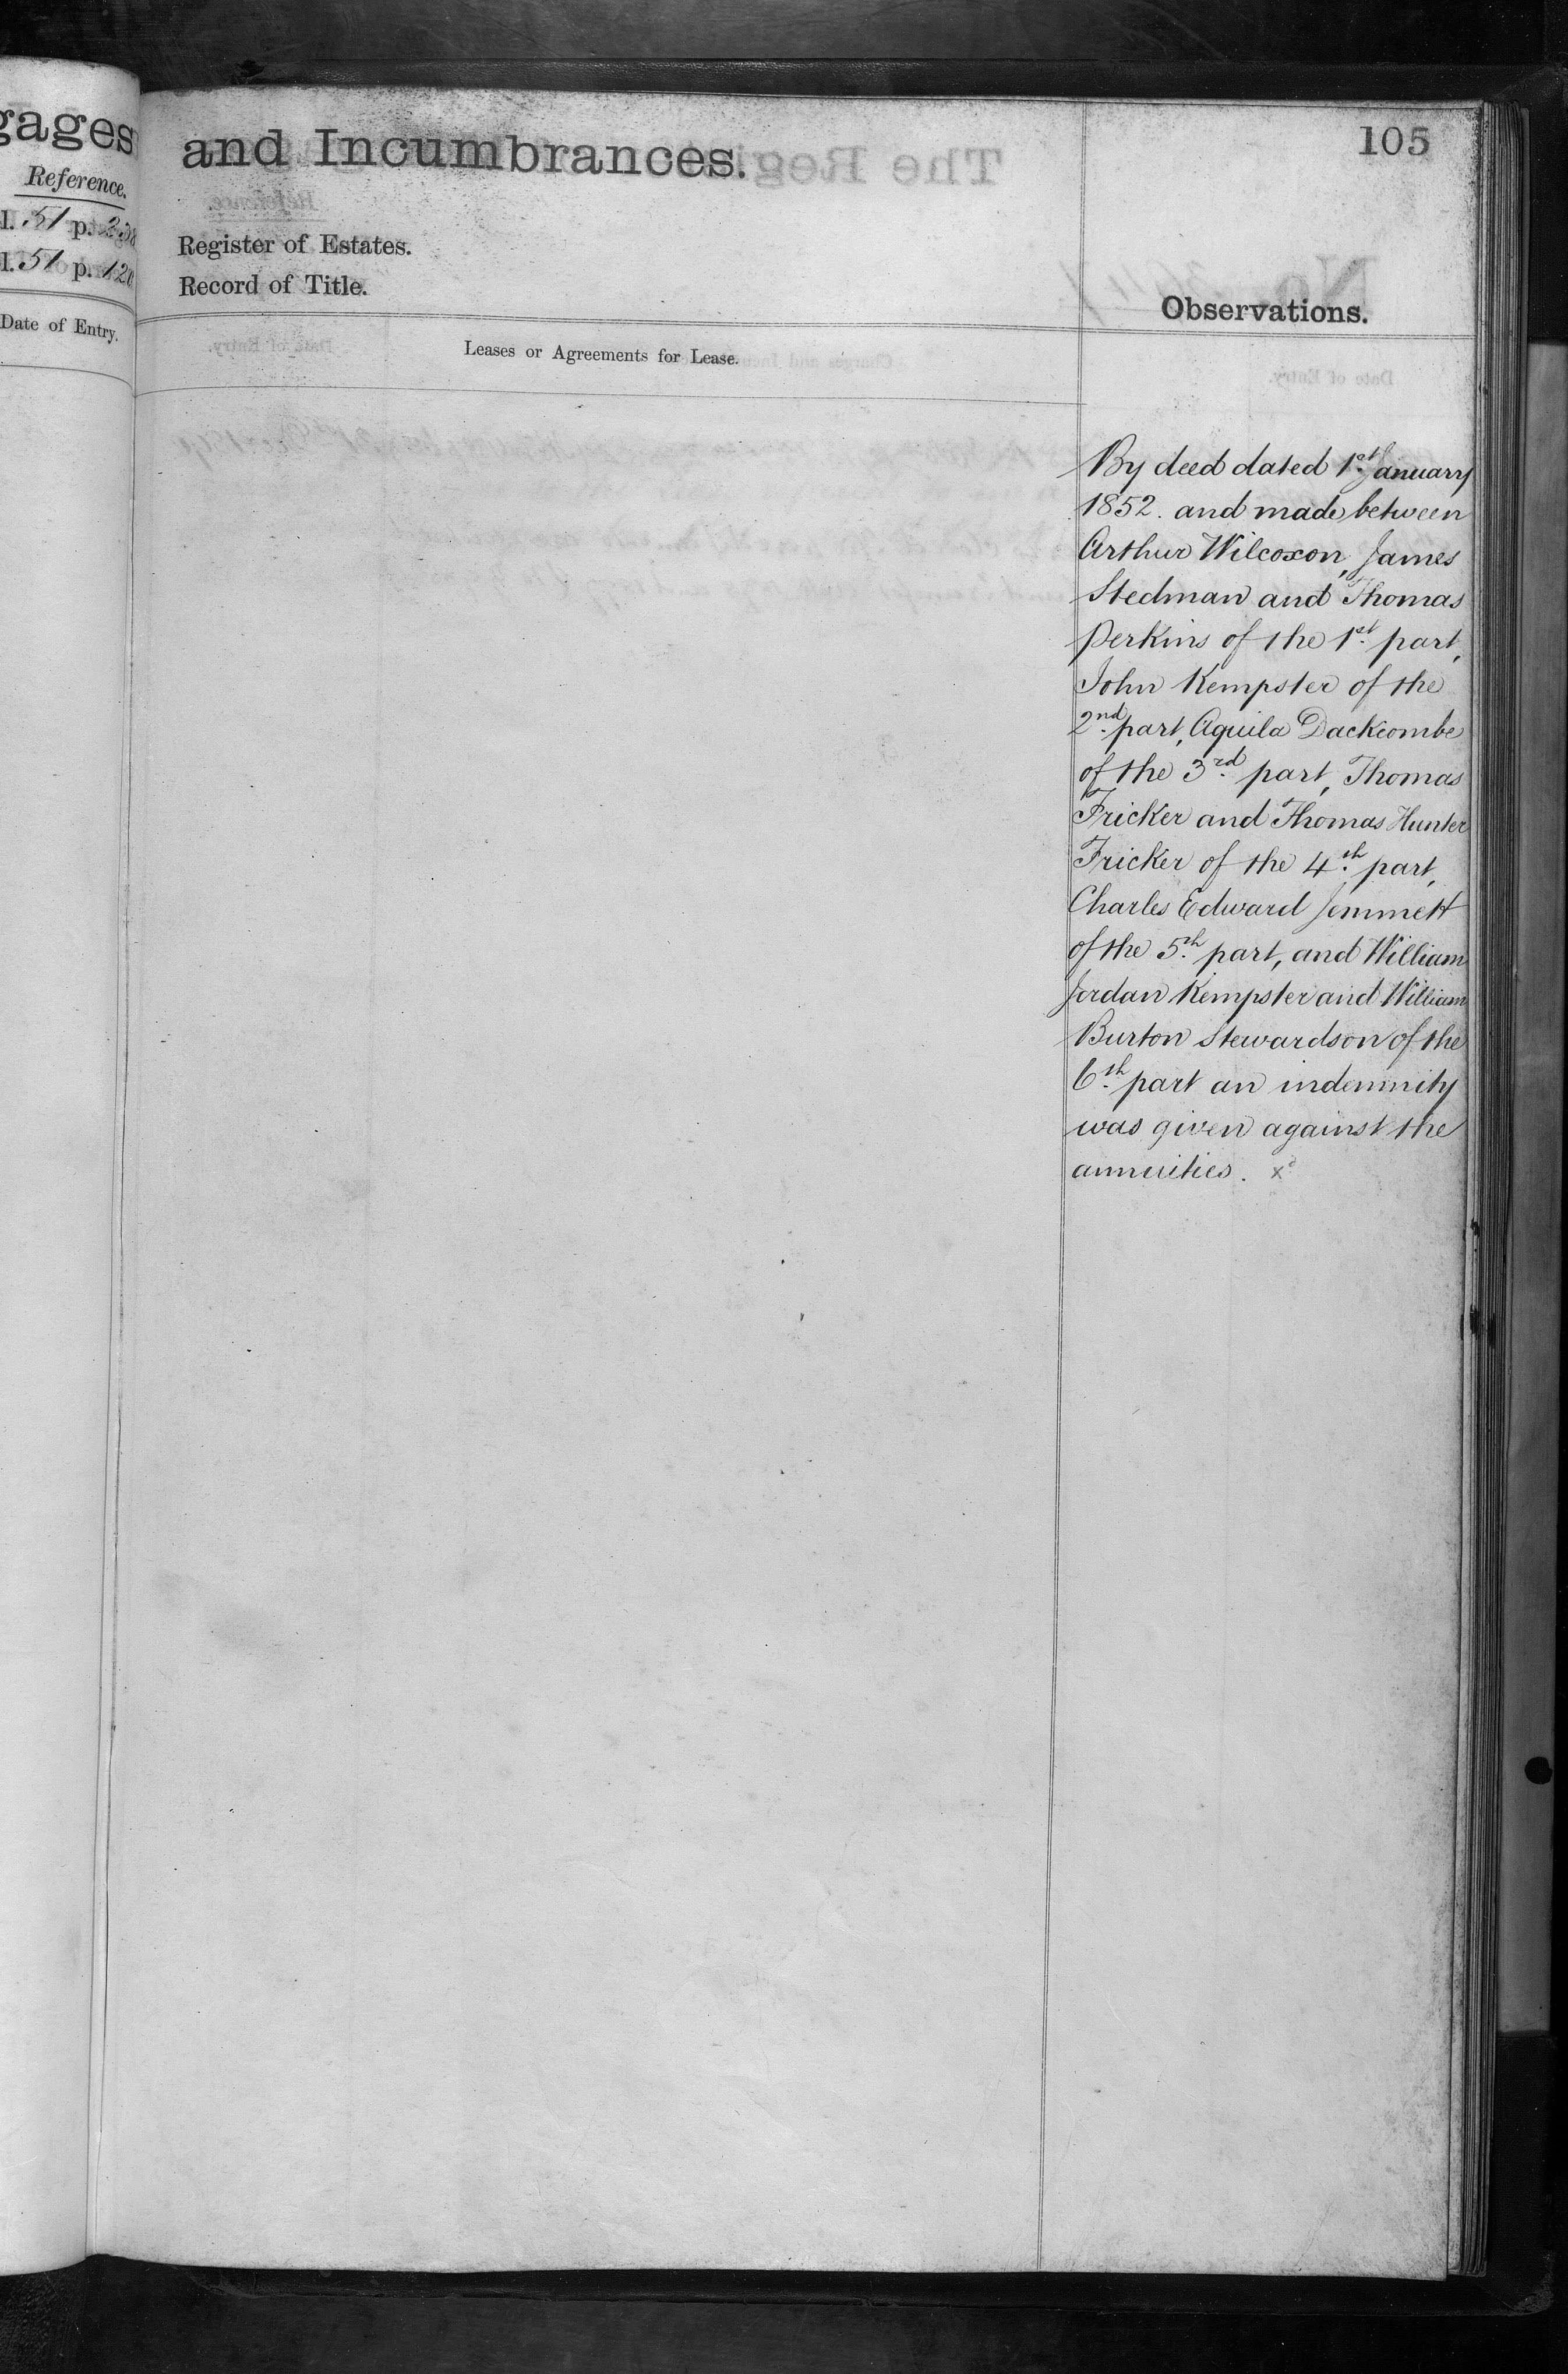 gages
Reference.
l. 51 p. 238
l. 51 p. 120
Date of Entry.
and Incumbrances.
105
Register of Estates.
Record of Title.
Observations.
Leases or Agreements for Lease.
By deed dated 1st January
1852. and made between
Arthur Wilcoxon, James
Stedman and Thomas
Perkins of the 1st part,
John Kempster of the
2nd part, Aquila Dackcombe
of the 3rd part, Thomas
Fricker and Thomas Hunter
Fricker of the 4th part,
Charles Edward Jemmett
of the 5th part, and William
Jordan Kempster and William
Burton Stewardson of the
6th part an indemnity
was given against the
annuities.